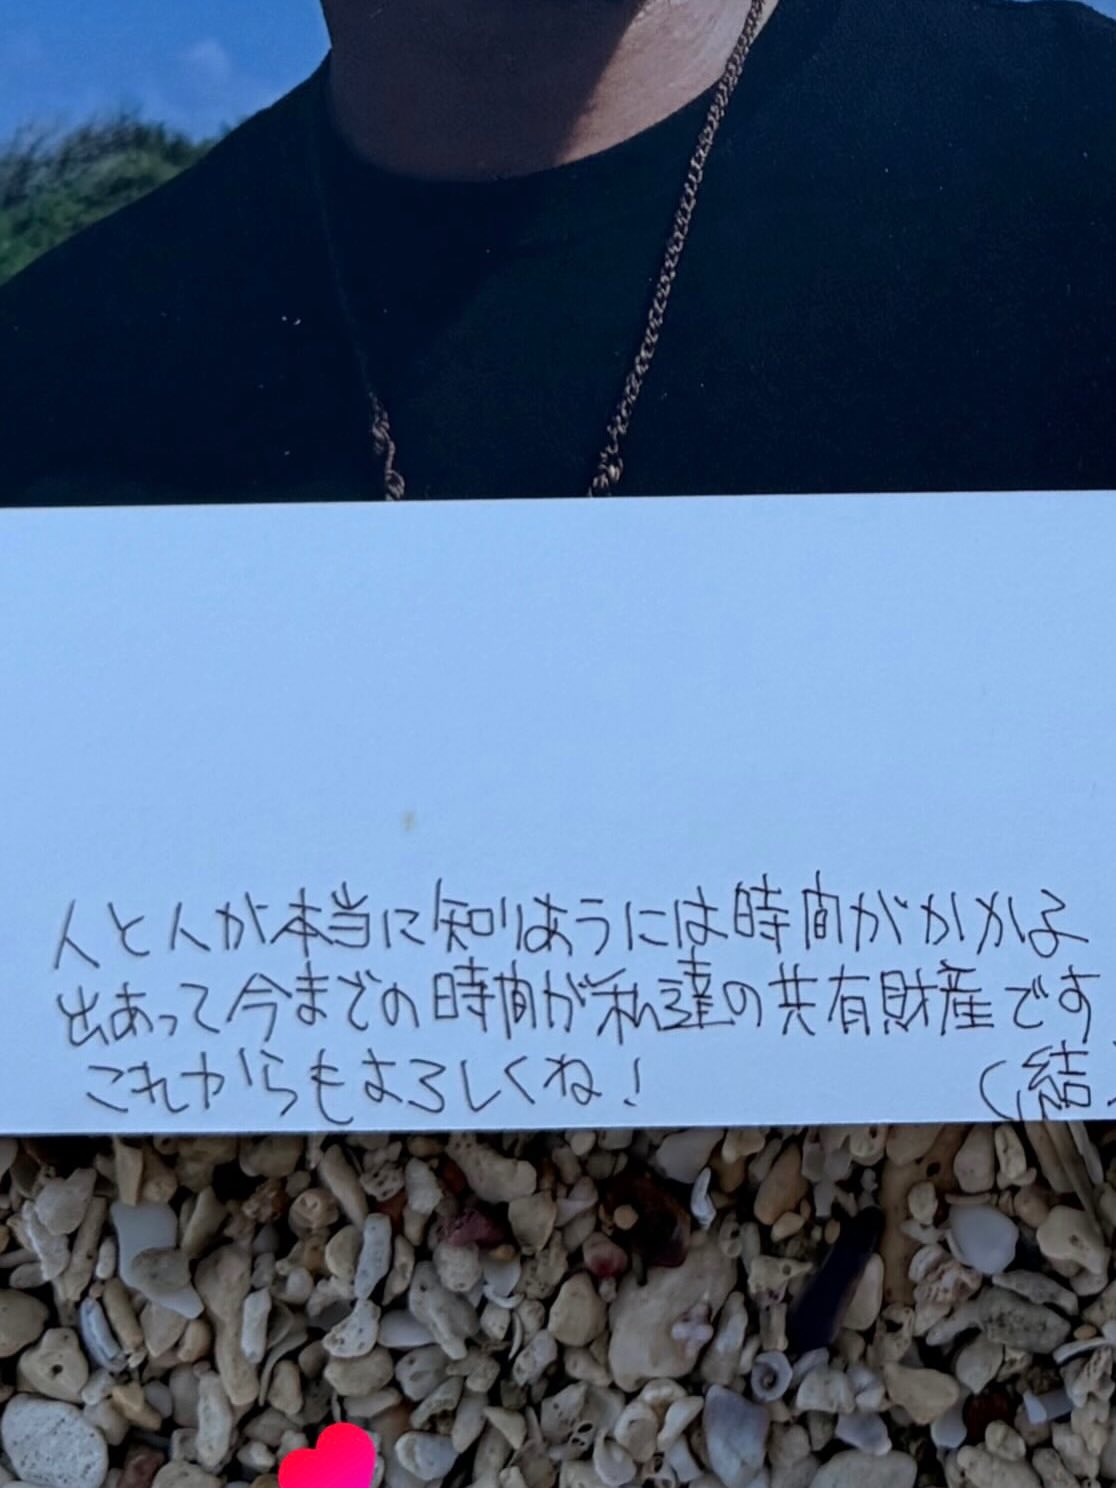 人と人が本当に知りあうには時間がかかる
出あって今までの時間が私達の共有財産です
これからもよろしくね!
(結